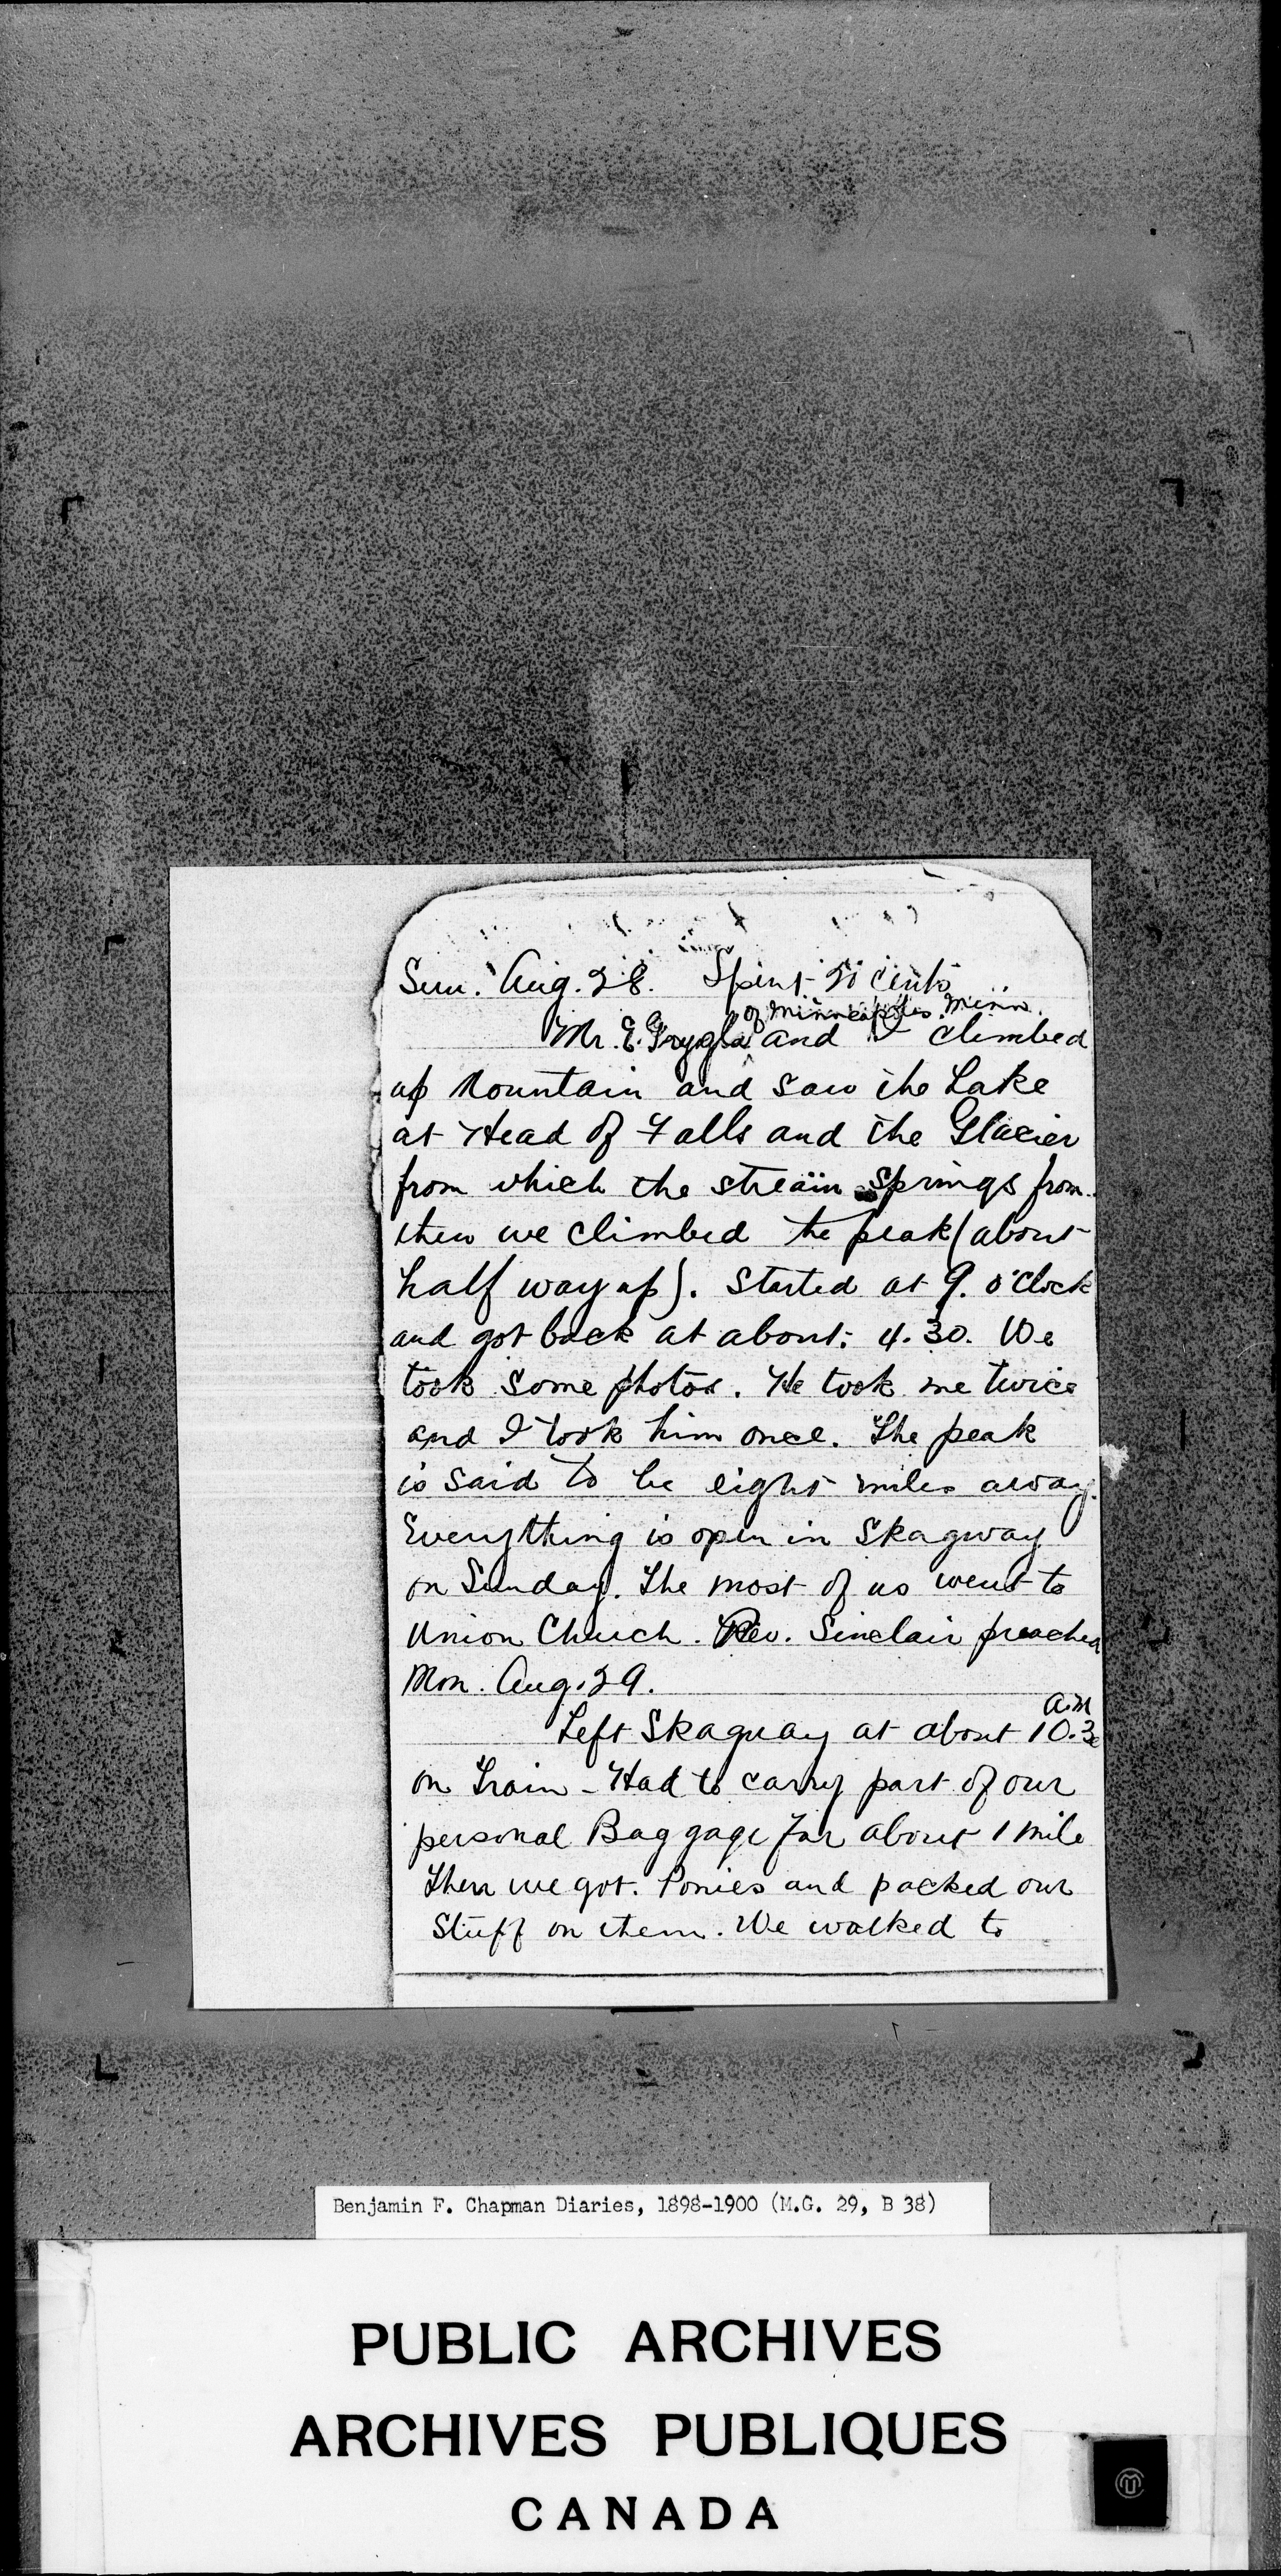 Sun. Aug. 28. Spent cents
of Minneapolis. Minn.
Mr. E. and I climbed
up Mountain and saw the Lake
at Head of Falls and the Glacier
from which the stream springs from.
then we climbed the peak (about
half way up). Started at 9. o'clock
and got back at about. 4.30. We
took some photos. He took me twice
and I took him once. The peak
is said to be eight miles away.
Everything is open in Skagway
on Sunday. The most of us went to
Union Church. Rev. Sinclair preached
Mon. Aug. 29.
a.m
Left Skaguay at about 10.30
on Train - Had to carry part of our
personal Baggage for about 1 mile
Then we got. Ponies and packed our
Stuff on them. We walked to
Benjamin F. Chapman Diaries, 1898-1900 (M.G. 29, B 38)
PUBLIC ARCHIVES
ARCHIVES PUBLIQUES
CANADA